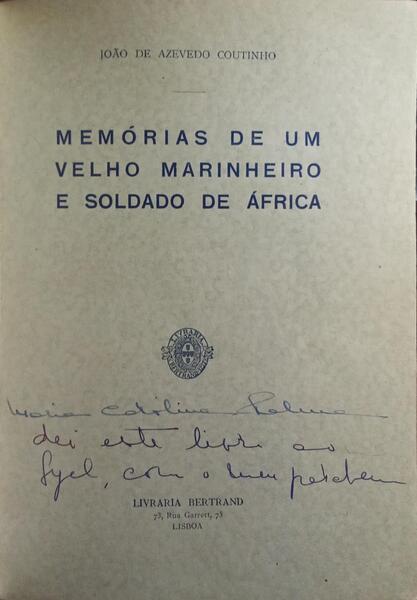 JOÃO DE AZEVEDO COUTINHO
MEMÓRIAS DE UM
VELHO MARINHEIRO
E SOLDADO DE ÁFRICA
LIVRARIA
BERTRAND
Maria Carolina
dei este livro ao
com o meu
LIVRARIA BERTRAND
73, Rua Garrett, 75
LISBOA